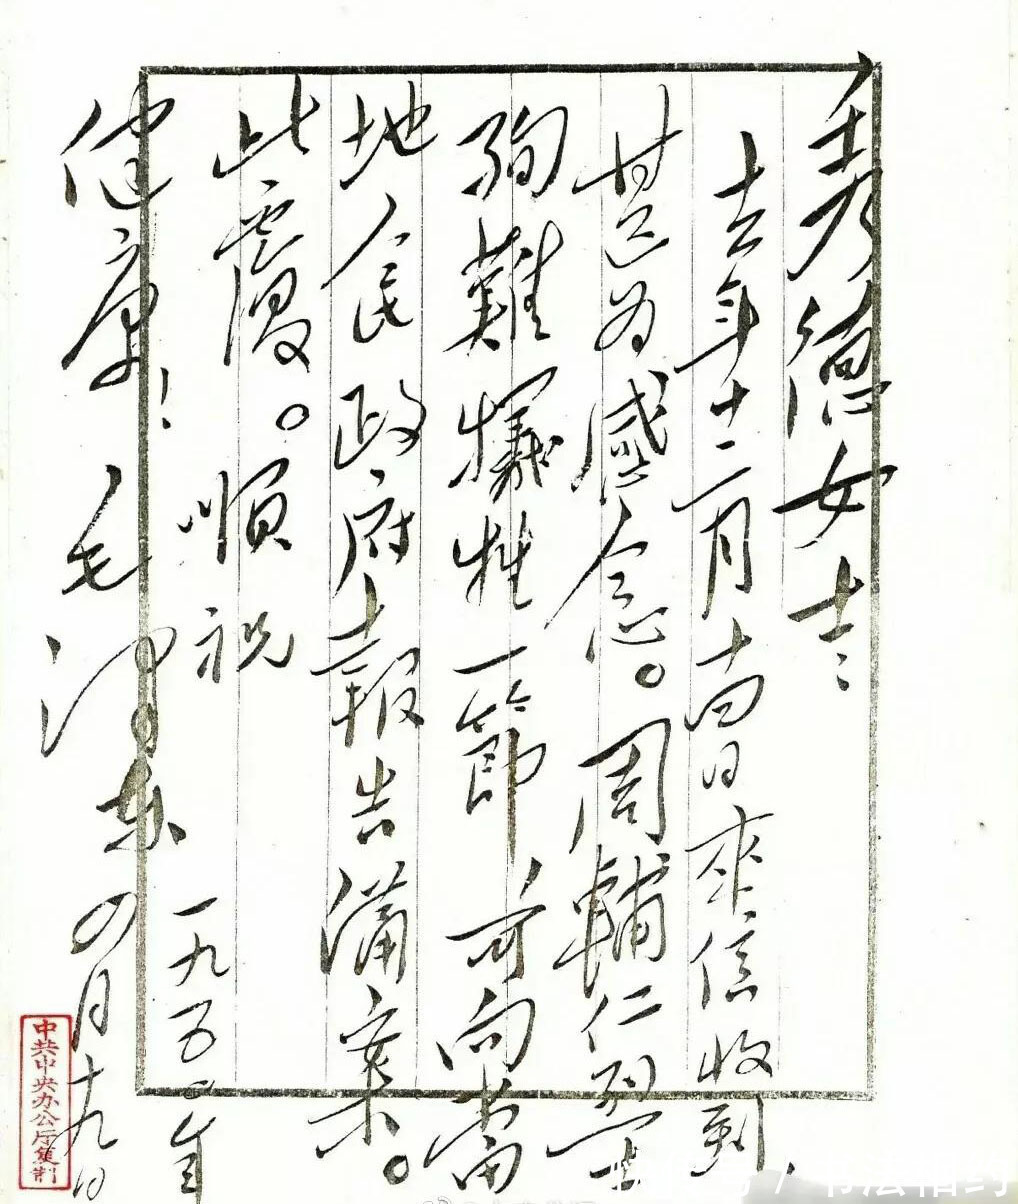 秀德女士：
去年十二月十四日来信收到，
甚为感念。周辅仁烈士
殉難犧牲一節，可向當
地人民政府報告備案。
此覆。順祝
健康！
毛泽东
一九五〇年
四月十九日
中共中央办公厅复制